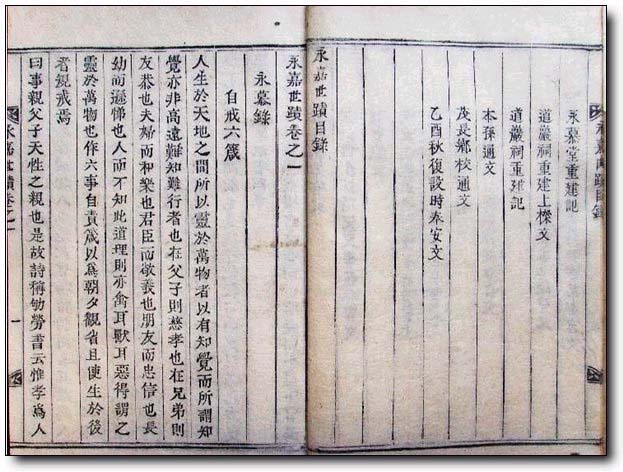 永嘉世蹟目錄
永慕堂重建記
道巖祠重建上樑文
道巖祠重建記
本孫通文
茂長鄕校通文
乙酉秋復設時奉安文
永嘉世蹟目錄
永嘉世蹟卷之一
永慕錄
自戒六箴
人生於天地之間所以靈於萬物者以有知覺而所謂知
覺亦非高遠難知難行者也在父子則慈孝也在兄弟則
友恭也夫婦而和樂也君臣而敬義也朋友而忠信也長
幼而遜悌也人而不知此道理則亦禽耳獸耳惡得謂之
靈於萬物也作六事自責箴以爲朝夕觀省且使生於後
者戒焉
曰事親父子天性之親也是故詩稱劬勞書云惟孝爲人
永嘉世蹟卷之一
一